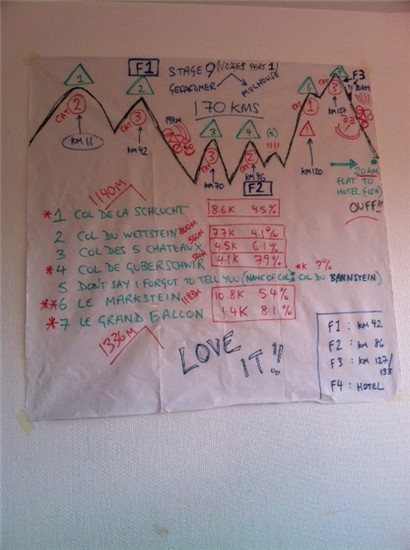 F1
STAGE 9 (VOSGES PART 1)
GERARDMER MULHOUSE
170 KMS
1
2
3
4
(5)
6
F3
CAT 2
CAT 3
CAT 3
CAT 2
CAT 1
CAT 3
KM 11
KM 42
KM 70
KM 86
F2
KM 120
KM 127
20KM
FLAT TO
HOTEL (FISH)
OUFF!!
1140M
*1 COL DE LA SCHLUCHT 8.6K 4.5%
2 COL DU WETTSTEIN 800M 7.7K 4.1%
3 COL DES 5 CHATEAUX 4.5K 6.1%
*4 COL DE GUBERSCHWIR 4.1K 7.9% *K 9%
5 DON'T SAY I FORGOT TO TELL YOU (NAME OF COL: COL DU BANNSTEIN)
**6 LE MARKSTEIN 1183M 10.8K 5.4%
*7 LE GRAND BALLON 1.4K 8.1%
1336M
LOVE IT!!
F1 : KM 42
F2 : KM 86
F3 : KM 127/
133
F4 : HOTEL